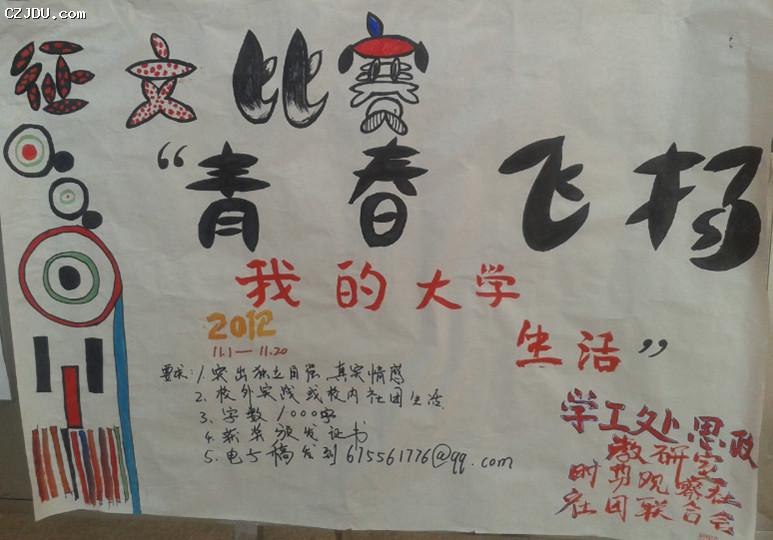 CZJDU.com
征文比赛
“青春飞扬
我的大学
生活”
2012
11.1—11.20
要求:1.突出独立自强 真实情感
2、校外实战或校内社团生活
3、字数1000字
4.获奖颁发证书
5.电子稿发到675561776@qq.com
学工处思政
教研室
时势观察社
社团联合会